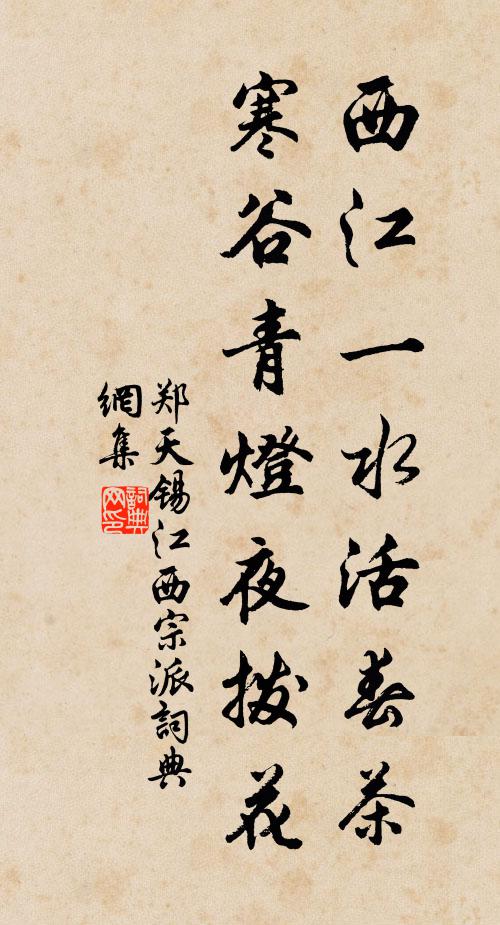 西江一水活春茶
寒谷青燈夜拨花
郑天锡江西宗派詞典
網集
詞典网印